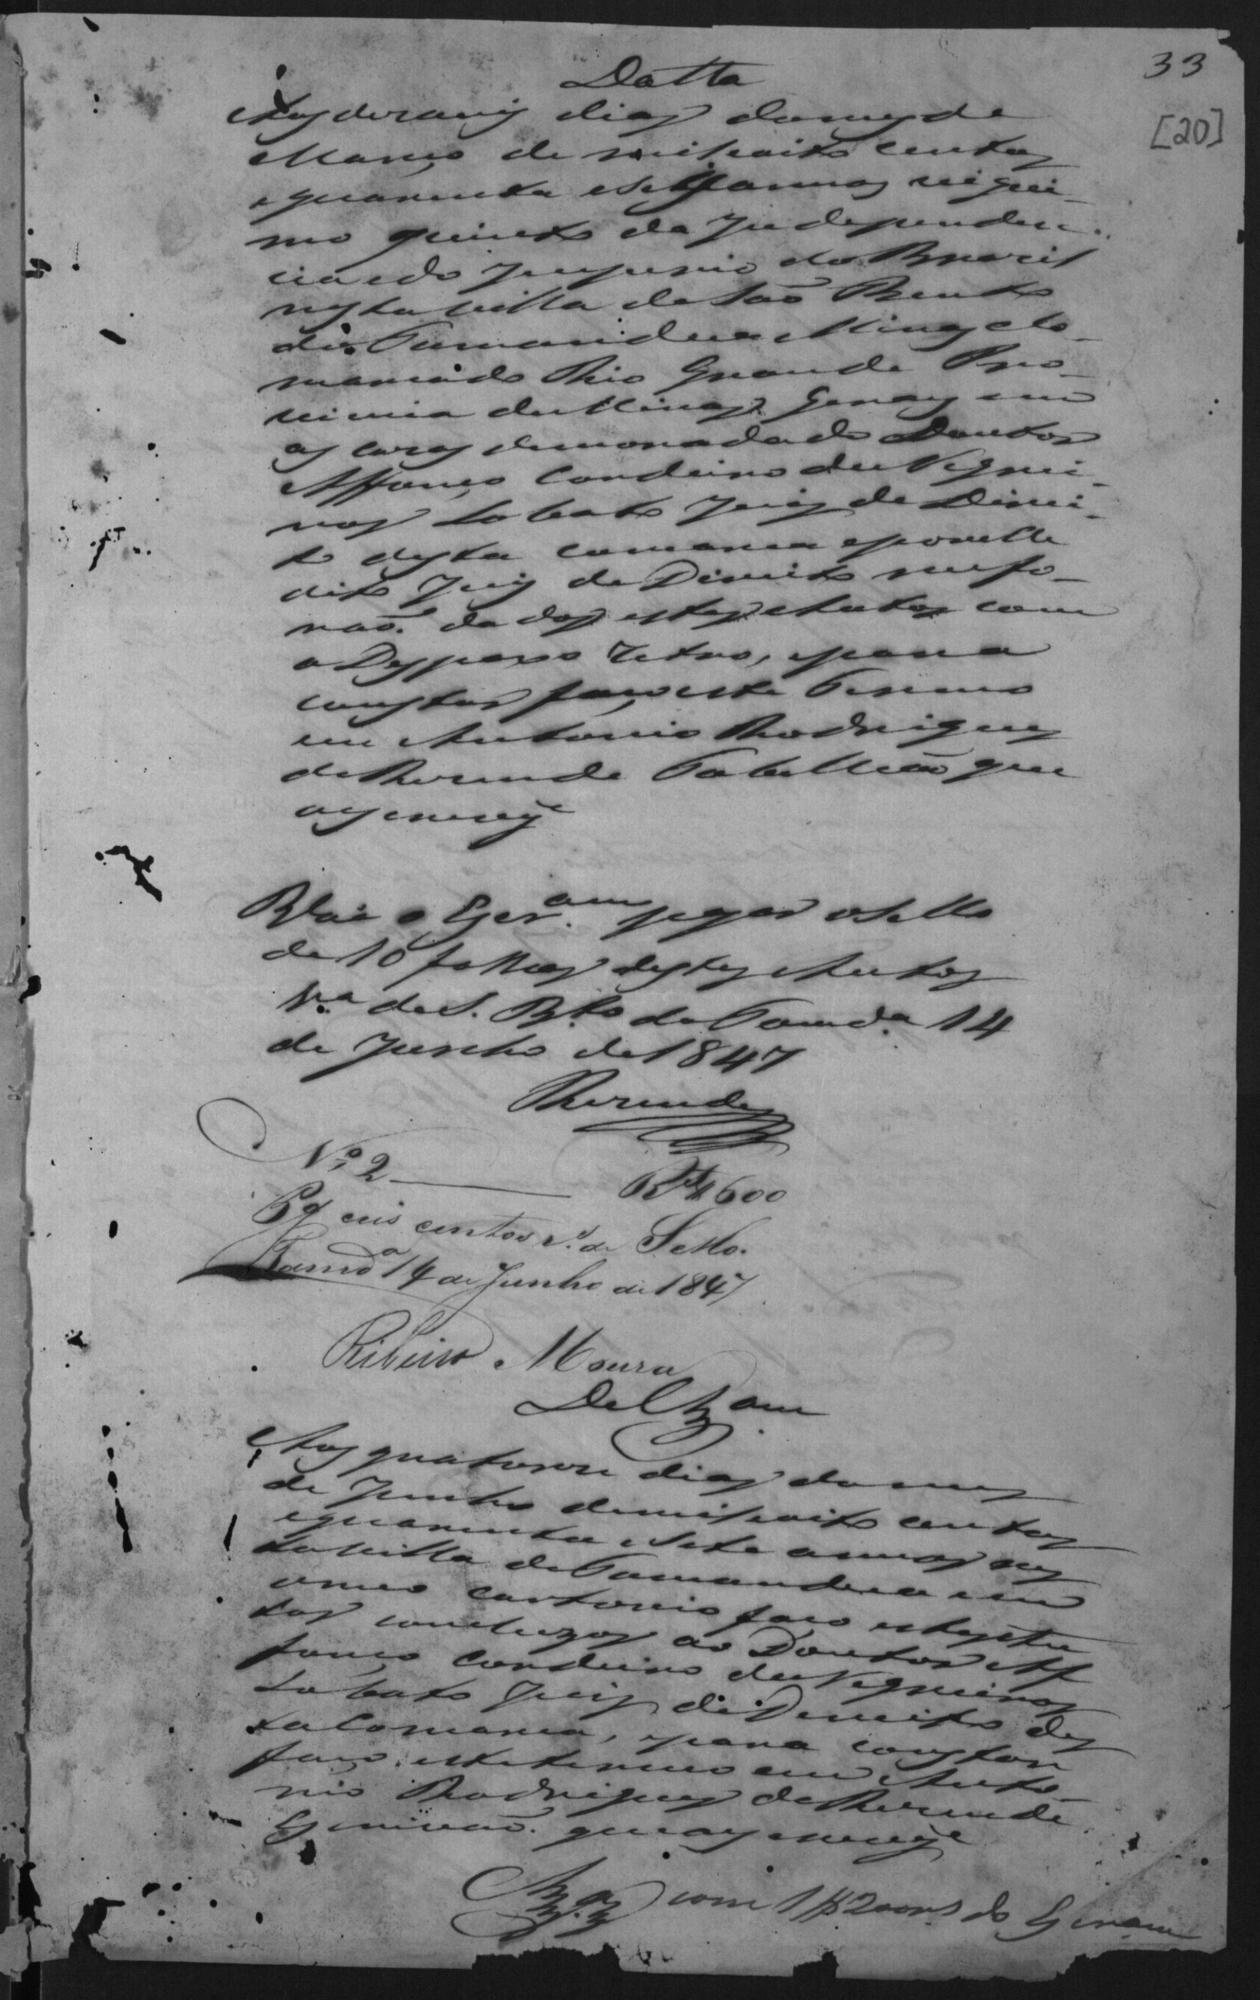 33
[20]
Datta
Aos dezaseis dias do mes de
Março de mil oito centos
e quarenta e Sette annos vigesi-
mo quinto da Independen-
cia e do Imperio do Brazil
nesta villa de São Bento
do Tamanduá Minas Co-
marca do Rio Grande Pro-
vincia de Minas Geraes em
as cazas de morada do Doutor
Affonço Cordeiro de Negrei-
ros Lobato Juis de Direi-
to desta comarca e por elle
dito Juis de Direito me fo-
rão dados estes Autos com
o Despaxo Retro, e para
constar faço este Termo
eu Antonio Rodrigues
de Rezende Tabellião que
o escrevy
o Escr.am pagar o Sello
de 10 folhas destes Autos
V.a de S. B.to do Tamd.a 14
de Junho de 1847
Rezende
N.o 2 R.s 600
Pg ceis centos r.s de Sello.
Tamd.a 14 de Junho de 1847
Ribeiro Moura
De Clzam
Aos quatorze dias do mes
de Junho de mil oito centos
e quarenta e Sete annos nes
ta villa de Tamanduá em
o meo cartorio faço estes Au
tos concluzos ao Doutor Af
fonço Cordeiro de Negreiros
Lobato Juis de Direito des
ta Comarca, e para constar
faço este termo eu Anto-
nio Rodrigues de Rezende
Escrivão que o escrevy
Clz.os com 1$200 r.s do Escrivam